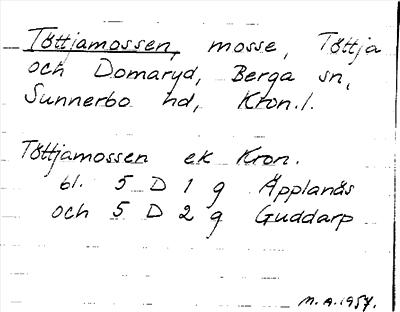 Töttjamossen, mosse, Töttja
och Domaryd, Berga sn,
Sunnerbo hd, Kron.l.
Töttjamossen ek Kron.
bl. 5 D 1 g Äpplanäs
och 5 D 2 g Guddarp
M.A. 1957.